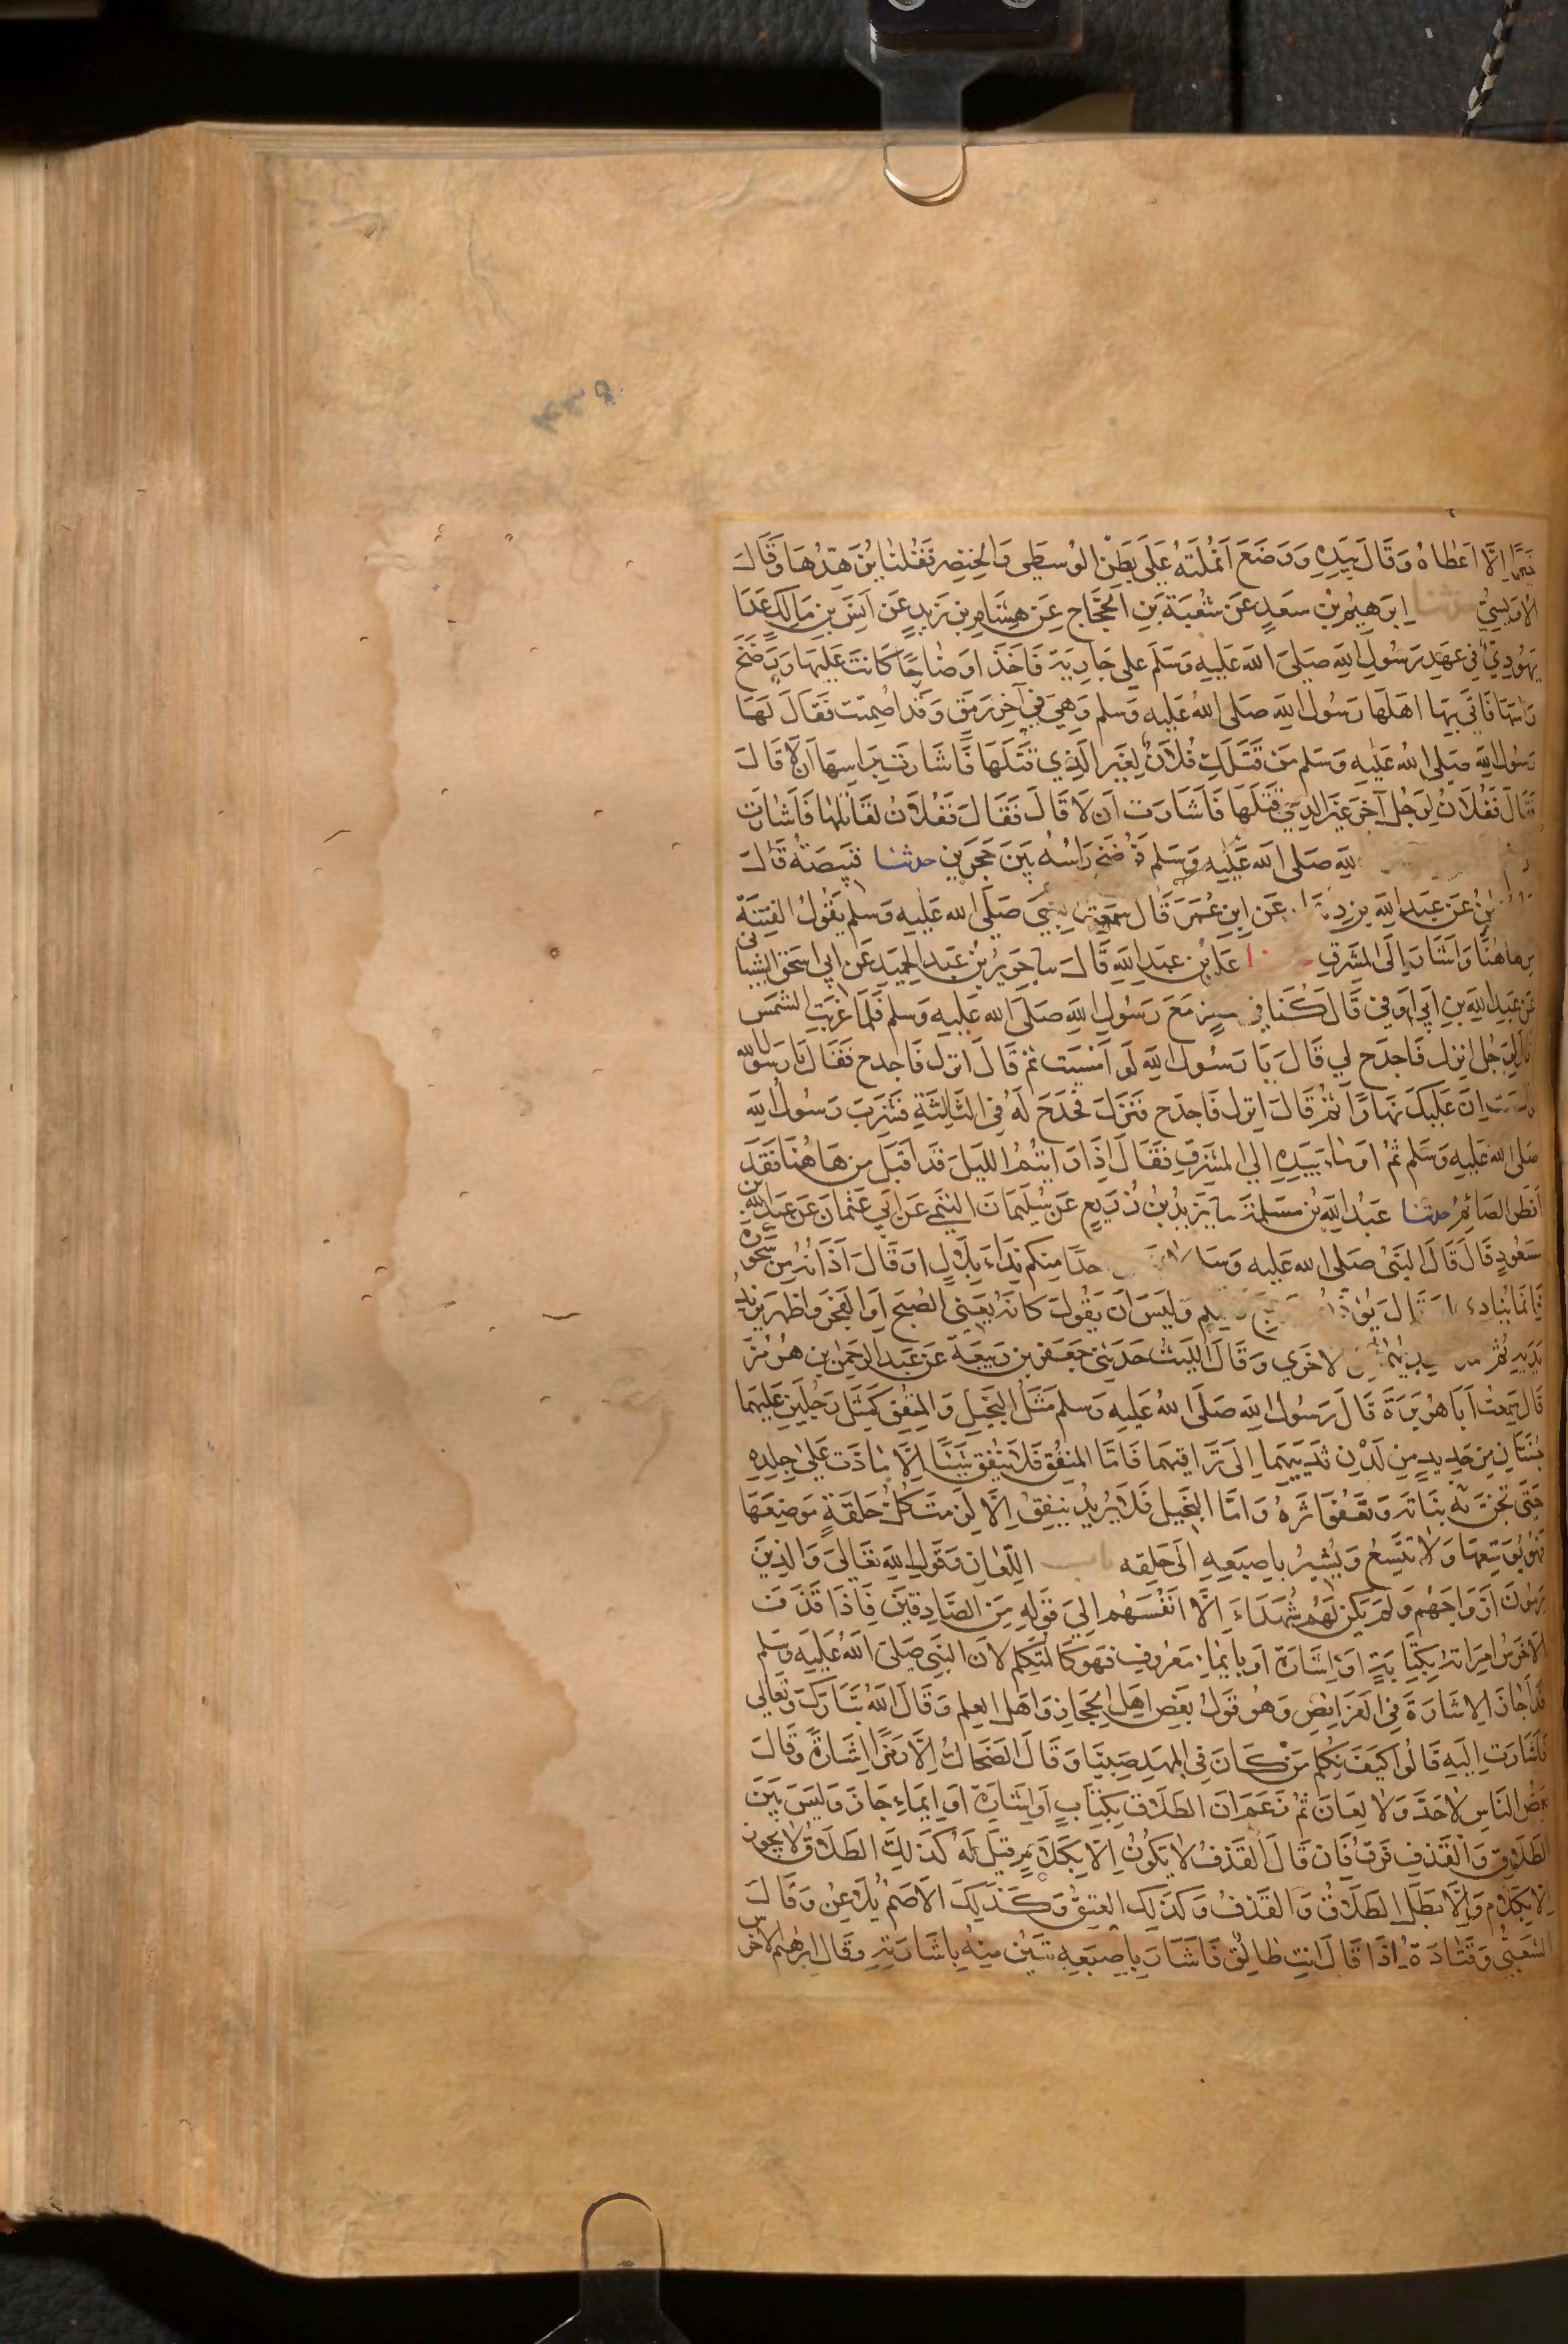 خيرا الا اعطاه وقال بيده ووضع انملته على بطن الوسطى والخنصر فقلنا يزهدها وقال
الاويسي حدثنا ابرهيم بن سعد عن شعبة بن الحجاج عن هشام بن زيد عن انس بن مالك عدا
يهودي في عهد رسول الله صلى الله عليه وسلم على جارية فاخذ اوضاحا كانت عليها ورضخ
راسها فاتى بها اهلها رسول الله صلى الله عليه وسلم وهي في آخر رمق وقد اصمتت فقال لها
رسول الله صلى الله عليه وسلم من قتلك فلان لغير الذي قتلها فاشارت براسها ان لا قال
فقال ففلان لرجل آخر غير الذي قتلها فاشارت ان لا قال فقال ففلان لقاتلها فاشارت
الله صلى الله عليه وسلم فرضخ راسه بين حجرين حدثنا قبيصة قال
عن عبد الله بن عن ابن عمر قال سمعت النبي صلى الله عليه وسلم يقول الفتنة
من هاهنا واشار الى المشرق علي بن عبد الله قال سا جرير بن عبد الحميد عن ابي اسحق الشيباني
عن عبد الله بن ابي اوفى قال كنا في سفر مع رسول الله صلى الله عليه وسلم فلما غربت الشمس
قال لرجل انزل فاجدح لي قال يا رسول الله لو امسيت ثم قال انزل فاجدح فقال يا رسول الله
لو امسيت ان عليك نهارا ثم قال انزل فاجدح فنزل فجدح له في الثالثة فشرب رسول الله
صلى الله عليه وسلم ثم اوماء بيده الى المشرق فقال اذا رايتم الليل قد اقبل من هاهنا فقد
افطر الصائم حدثنا عبد الله بن مسلمة سا يزيد بن زريع عن سليمان التيمي عن ابي عثمان عن عبد الله بن
مسعود قال قال النبي صلى الله عليه وسلم احدا منكم نداء بلال او قال اذانه من سحوره
فانما ينادي او قال يؤذن وليس ان يقول كانه يعني الصبح او الفجر واظهر يزيد
يديه ثم الاخرى وقال الليث حدثني جعفر بن ربيعة عن عبد الرحمن بن هرمز
قال سمعت ابا هريرة قال رسول الله صلى الله عليه وسلم مثل البخيل والمنفق كمثل رجلين عليهما
جبتان من حديد من لدن ثدييهما الى تراقيهما فاما المنفق فلا ينفق شيئا الا ماذت على جلده
حتى تجن بنانه وتعفو اثره واما البخيل فلا يريد ينفق الا لزمت كل حلقة موضعها
فهو يوسعها ولا تتسع ويشير باصبعه الى حلقه باب اللعان وقول الله تعالى والذين
يرمون ازواجهم ولم يكن لهم شهداء الا انفسهم الى قوله من الصادقين فاذا قذف
الاخرس امراته بكتابة او اشارة او بايماء معروف فهو كالمتكلم لان النبي صلى الله عليه وسلم
قد اجاز الاشارة في الفرائض وهو قول بعض اهل الحجاز واهل العلم وقال الله تبارك وتعالى
فاشارت اليه قالوا كيف نكلم من كان في المهد صبيا وقال الضحاك الا رمزا اشارة وقال
بعض الناس لا حد ولا لعان ثم زعم ان الطلاق بكتاب او اشارة او ايماء جاز وليس بين
الطلاق والقذف فرق فان قال القذف لا يكون الا بكلام قيل له كذلك الطلاق لا يجوز
الا بكلام والا بطل الطلاق والقذف وكذلك العتق وكذلك الاصم يلاعن وقال
الشعبي وقتادة اذا قال انت طالق فاشار باصبعه تبين منه باشارته وقال ابرهيم الاخرس